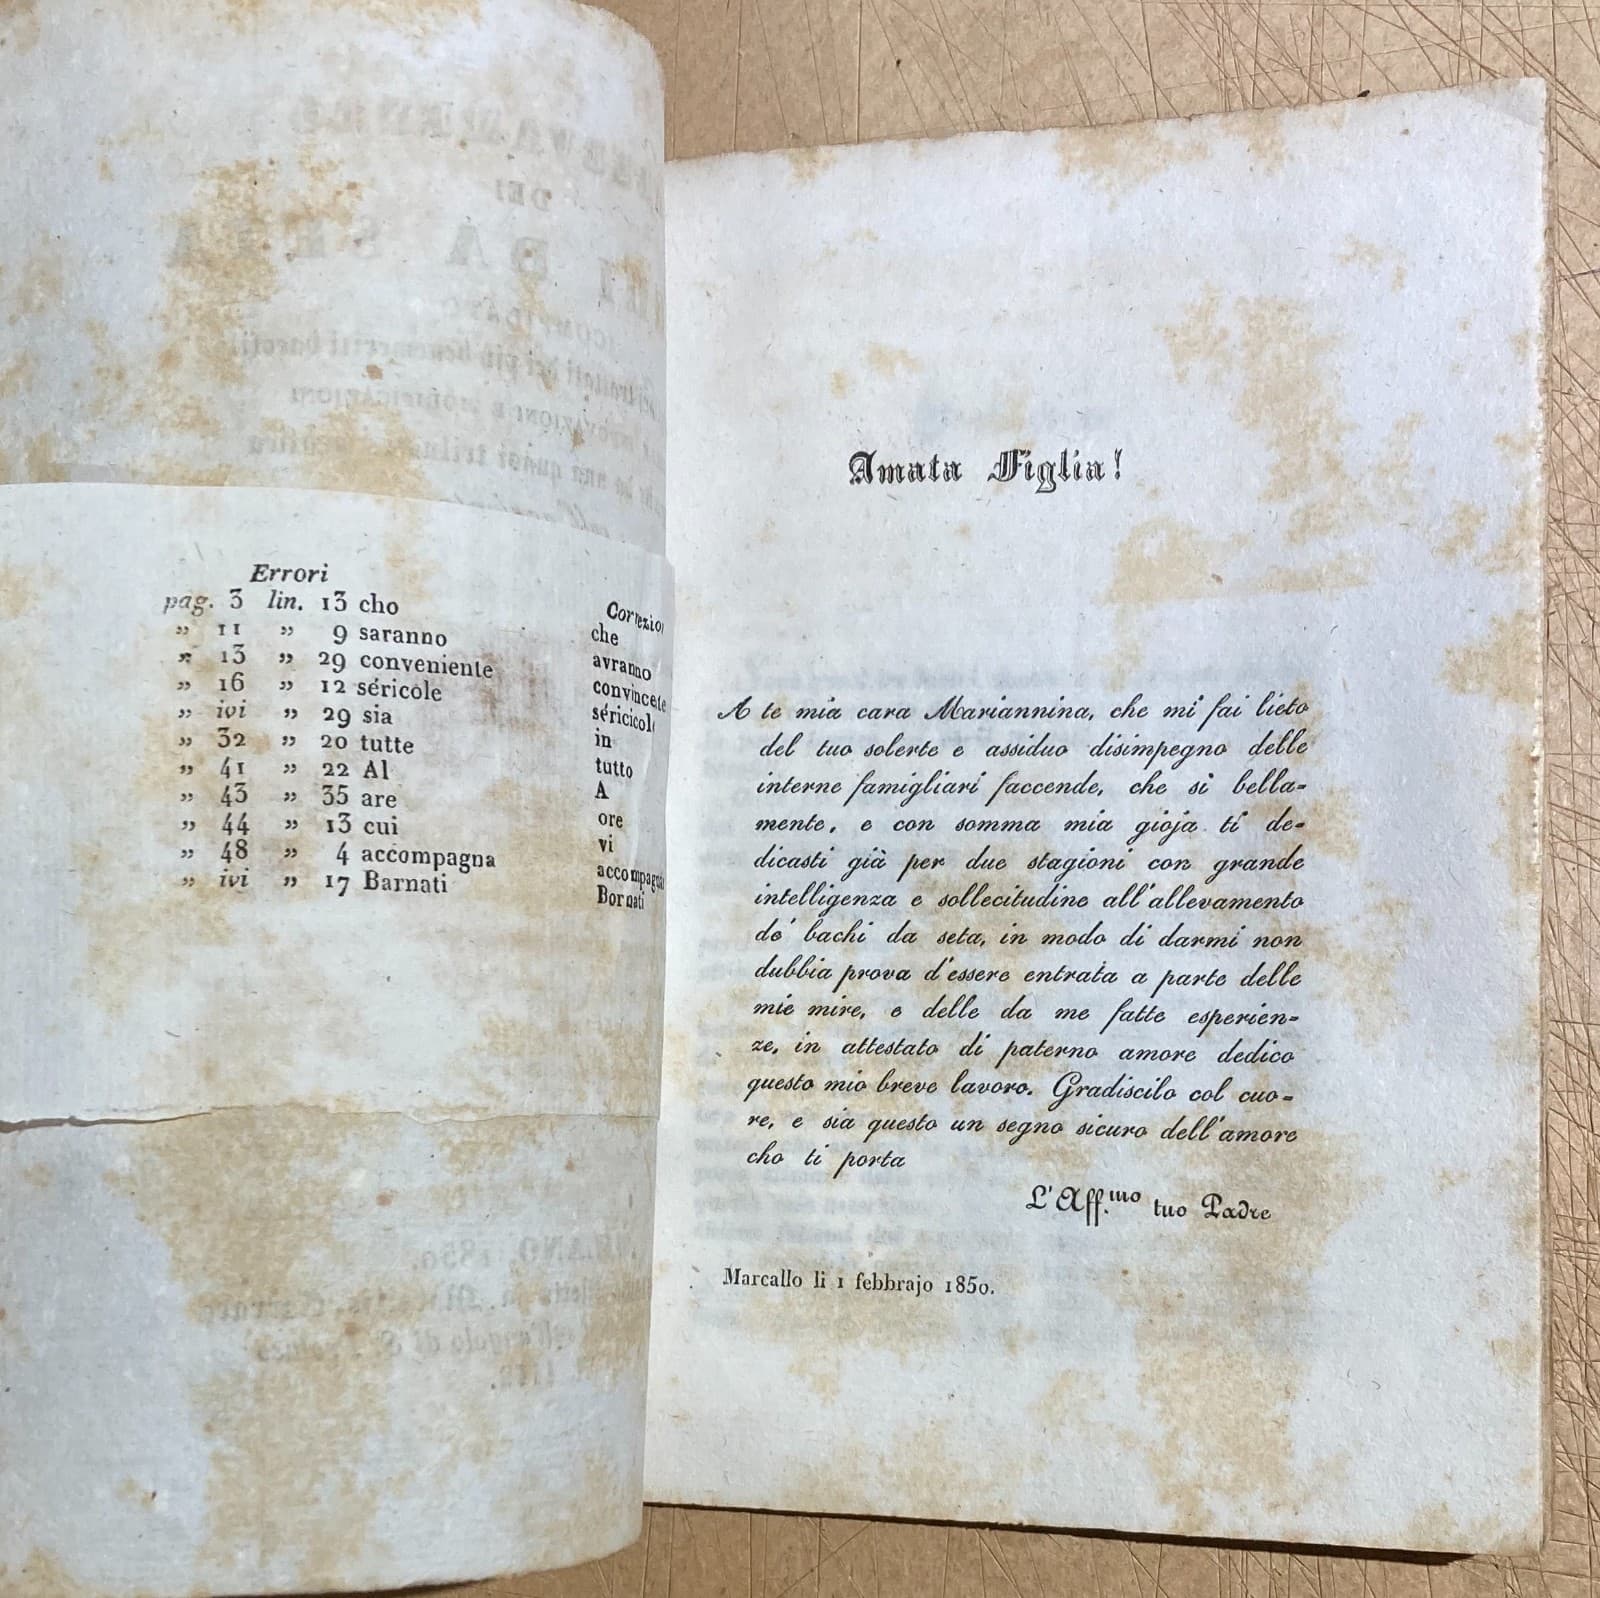 Errori Correzio
pag. 3 lin. 13 cho che
„ 11 „ 9 saranno avranno
„ 13 „ 29 conveniente convincete
„ 16 „ 12 séricole séricicole
„ ivi „ 29 sia in
„ 32 „ 20 tutte tutto
„ 41 „ 22 Al A
„ 43 „ 35 are ore
„ 44 „ 13 cui vi
„ 48 „ 4 accompagna accompagna
„ ivi „ 17 Barnati Bornati
Amata Figlia!
A te mia cara Mariannina, che mi fai lieto
del tuo solerte e assiduo disimpegno delle
interne famigliari faccende, che sì bella-
mente, e con somma mia gioja ti de-
dicasti già per due stagioni con grande
intelligenza e sollecitudine all'allevamento
de' bachi da seta, in modo di darmi non
dubbia prova d'essere entrata a parte delle
mie mire, e delle da me fatte esperien-
ze, in attestato di paterno amore dedico
questo mio breve lavoro. Gradiscilo col cuo-
re, e sia questo un segno sicuro dell'amore
cho ti porta
L'Aff.mo tuo Padre
Marcallo li 1 febbrajo 1850.